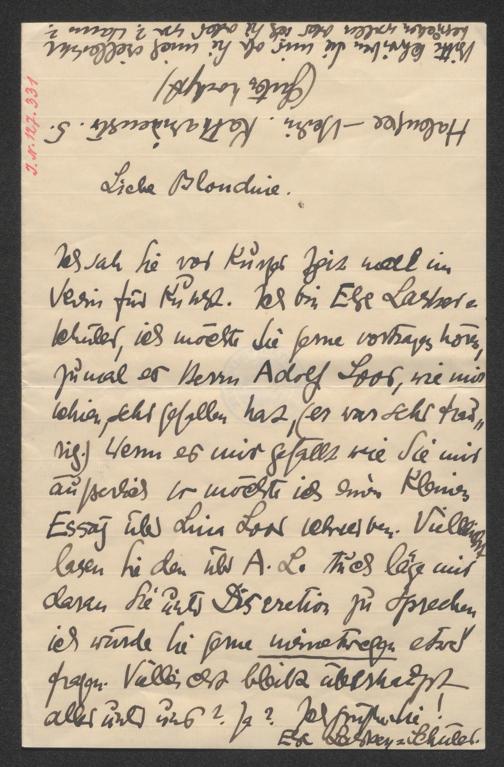 Liebe Blondine.
Ich sah Sie vor kurzer Zeit mall im
Verein für Kunst. Ich bin Else Lasker=
Schüler, ich möchte Sie gerne vortragen hören,
zumal es Herrn Adolf Loos, wie mir
schien, sehr gefallen hat, (er war sehr trau„
rig.) Wenn es mir gefällt wie Sie mir
äußerlich so möchte ich einen kleinen
Essay über Lina Loos schreiben. Vielleicht
lasen Sie den über A. L. Auch läge mir
daran Sie unter Discretion zu sprechen
ich würde Sie gerne meinetwegen etwas
fragen. Vielleicht bleibt überhaupt
alles unter uns? Ja? Ich grüße Sie!
Else Lasker=Schüler.
Halensee–Berlin. Katharinenstr. 5.
(Gartenhochpt)
Bitte schreiben Sie mir ob Sie mich vielleicht
besuchen wollen oder ich Sie oder wo? Wann?
J.N. 127.331